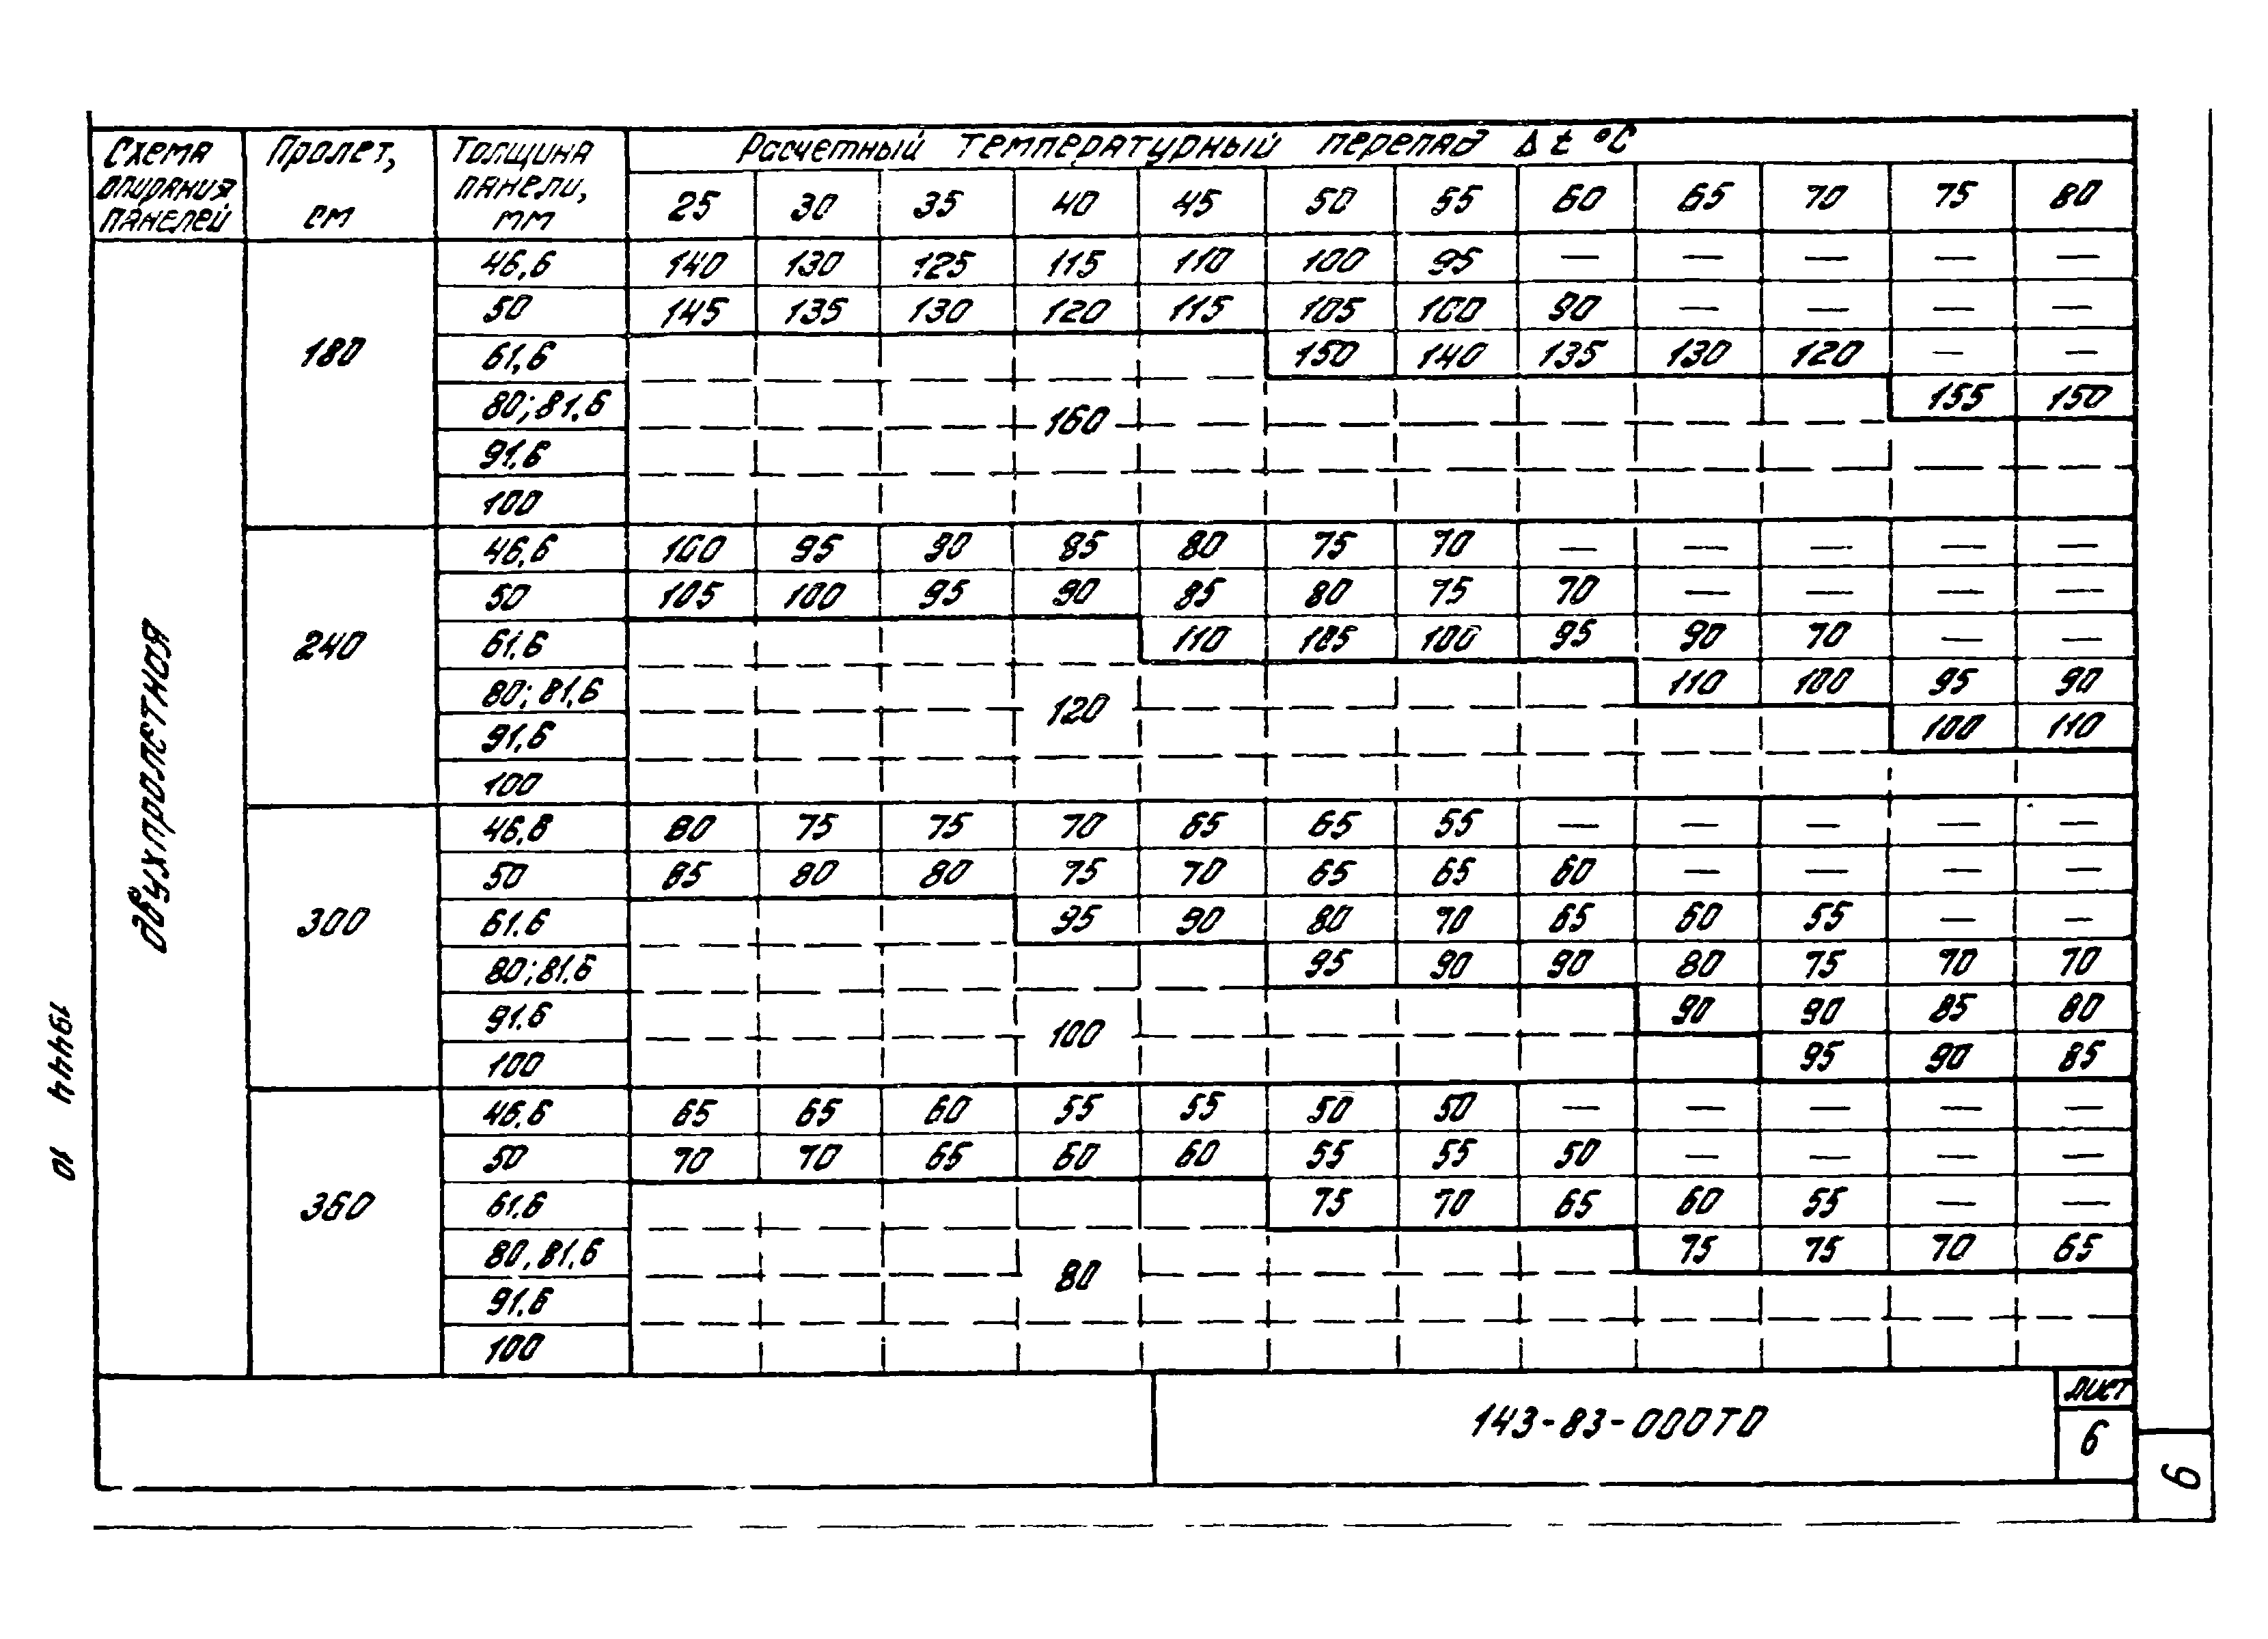 Схема опирания панелей Пролет, см Толщина панели, мм Расчетный температурный перепад Δ t °C
25 30 35 40 45 50 55 60 65 70 75 80
двухпролетная
180
46,6 140 130 125 115 110 100 95 — — — — —
50 145 135 130 120 115 105 100 90 — — — —
61,6 150 140 135 130 120 — —
80; 81,6 155 150
160
91,6
100
240
46,6 100 95 90 85 80 75 70 — — — — —
50 105 100 95 90 85 80 75 70 — — — —
61.6 110 105 100 95 90 70 — —
80; 81,6 110 100 95 90
120
91,6 100 110
100
300
46,6 80 75 75 70 65 65 55 — — — — —
50 85 80 80 75 70 65 65 60 — — — —
61.6 95 90 80 70 65 60 55 — —
80; 81.6 95 90 90 80 75 70 70
91.6 90 90 85 80
100
100 95 90 85
360
46,6 65 65 60 55 55 50 50 — — — — —
50 70 70 65 60 60 55 55 50 — — — —
61.6 75 70 65 60 55 — —
80, 81,6 75 75 70 65
80
91.6
100
143-83-000ТО
лист
6
6
19444 10